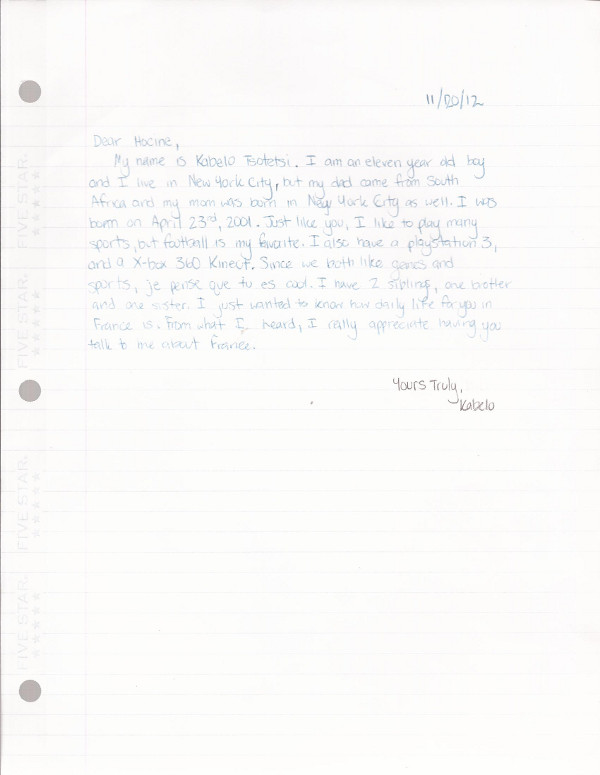 11/20/12
Dear Hocine,
My name is Kabelo Tsotetsi. I am an eleven year old boy
and I live in New York City, but my dad came from South
Africa and my mom was born in New York City as well. I was
born on April 23rd, 2001. Just like you, I like to play many
sports, but football is my favorite. I also have a playstation 3,
and a X-box 360 Kinect. Since we both like games and
sports, je pense que tu es cool. I have 2 siblings, one brother
and one sister. I just wanted to know how daily life for you in
France is. From what I heard, I really appreciate having you
talk to me about France.
Yours Truly,
Kabelo
FIVE STAR.
FIVE STAR.
FIVE STAR.
FIVE STAR.